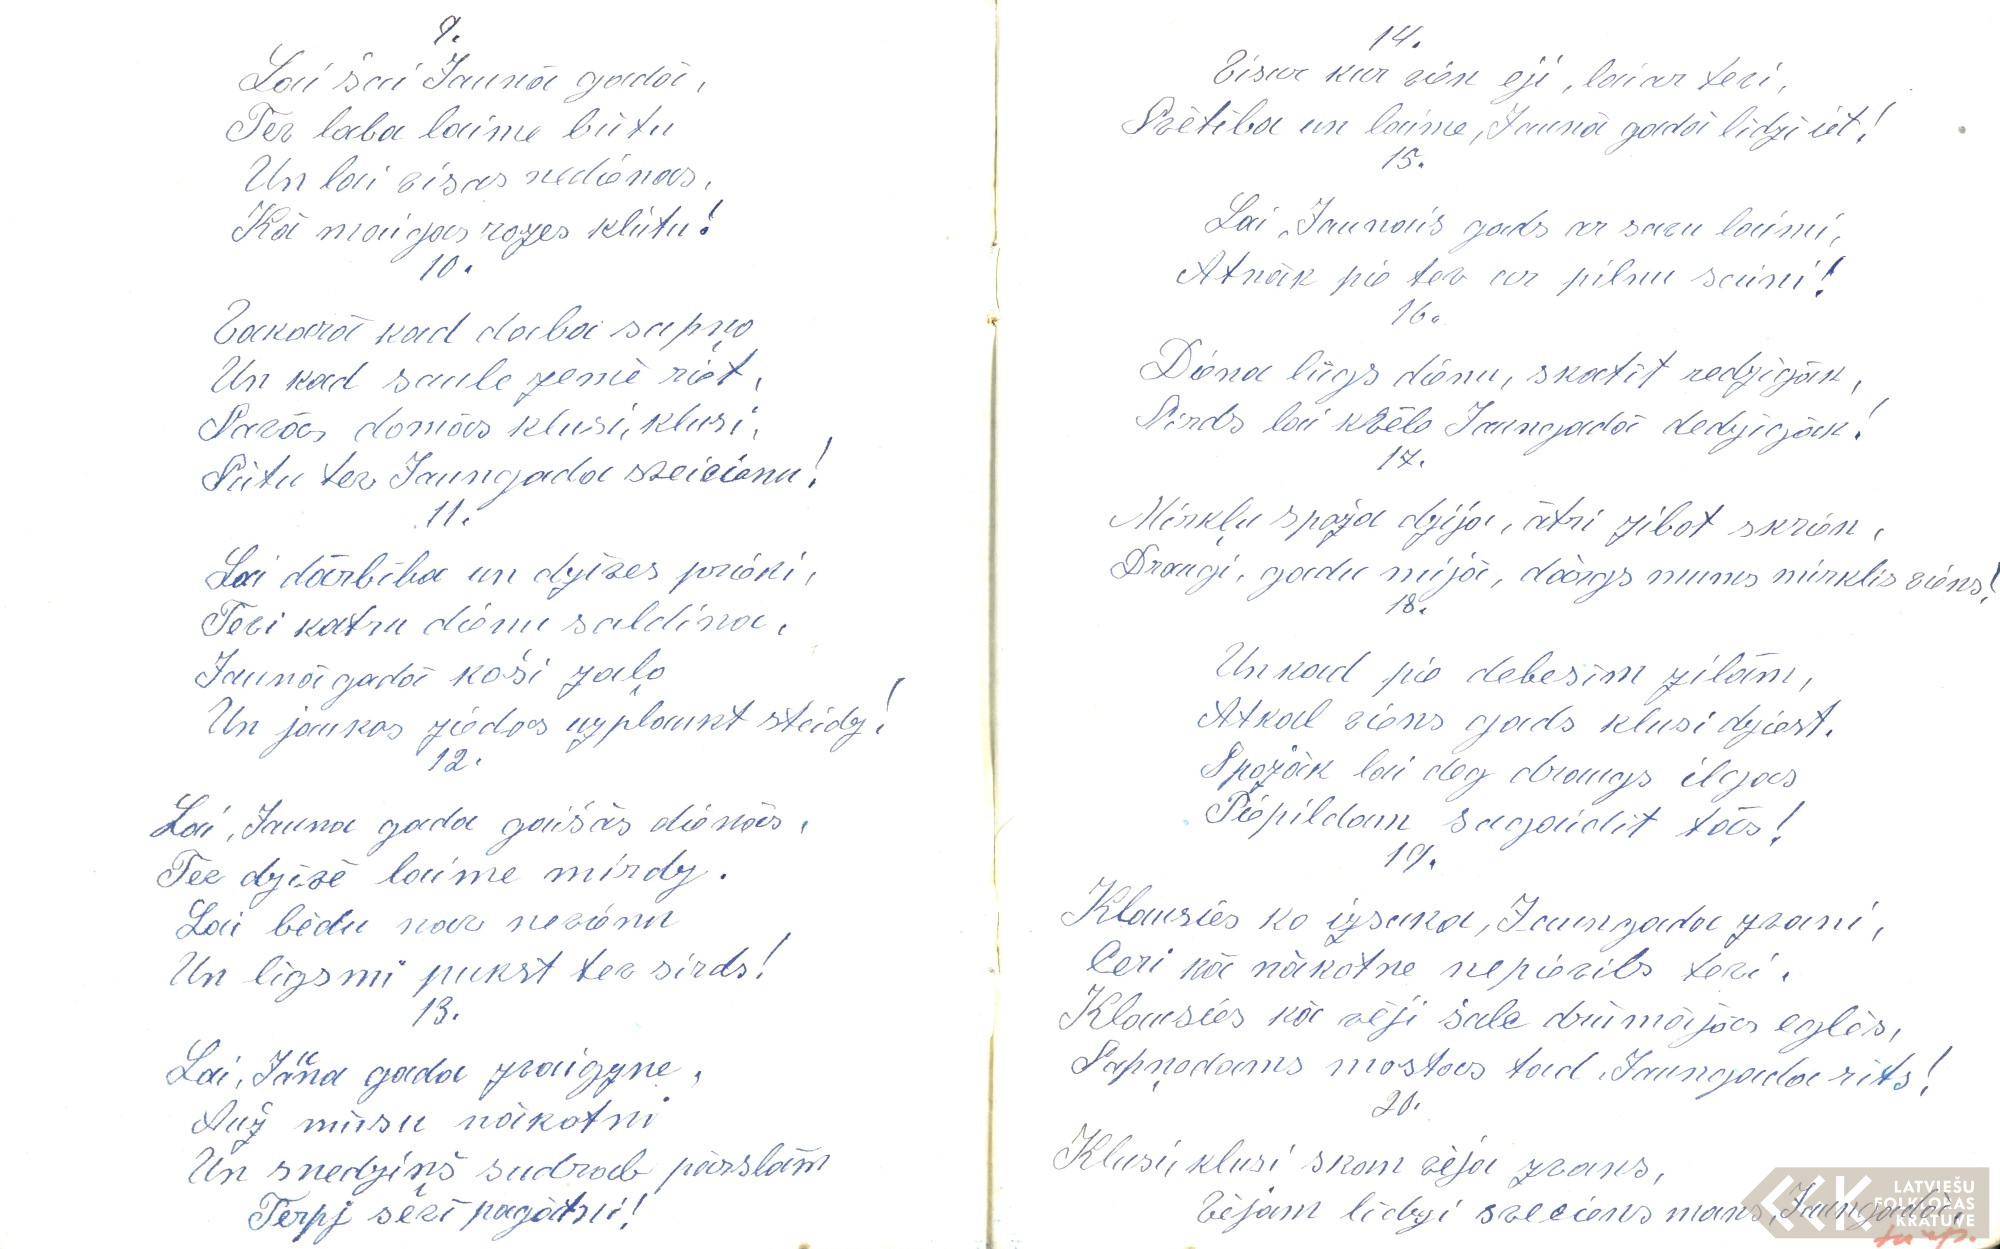 9.
Lai šai Jaunā gadā,
Tev laba laime būtu
Un lai visas nediēnas,
Kā maigas rozes klūtu!
10.
Vakarā kad daba sapņo
Un kad saule zemē riet,
Savās domās klusi, klusi,
Sūtu tev Jaungada sveicienu!
11.
Lai dārbība un dzīves prieki,
Tevi katru dienu saldina,
Jaunā gadā koši zaļo
Un jaukas ziedos uzplaukt steidz!
12.
Lai, Jauna gada gaišās dienās,
Tev dzīvē laime mirdz.
Lai bēdu nav nevienu
Un līgsmi pukst tev sirds!
13.
Lai, Jāūna gada zvaigzne,
Auž mūsu nākotni
Un snedziņš sudrab pārslām
Terpj sēri pagātni!
14.
Visur kur vien eji, lai ar tevi,
Svētība un laime, Jaunā gadā līdzi iet!
15.
Lai, Jaunais gads ar savu laimi,
Atnāk pie tev ar pilnu saini!
16.
Diena lūgs dienu, skatīt redzīgāk,
Sirds lai kvēlo Jaungadā dedzīgāk!
17.
Mirkļu spoža dzija, ātri zibot skrien,
Draugi, gadu mijā, dārgs mums mirklis viens!
18.
Un kad pie debesīm zilām,
Atkal viens gads klusi dziest.
Spožāk lai deg draugs ilgas
Piepildam sagaidīt tās!
19.
Klausies ko izsaka, Jaungada zvani,
Ceri kā nākotne nepievils tevi.
Klausies kā vēji šalc drūmājās eglēs,
Sapņodams mostas tad, Jaungada rīts!
20.
Klusi, klusi skan vēja zvans,
Vējam līdzi sveciens mans, Jaungadā,
LATVIEŠU
FOLKLORAS
KRĀTUVE